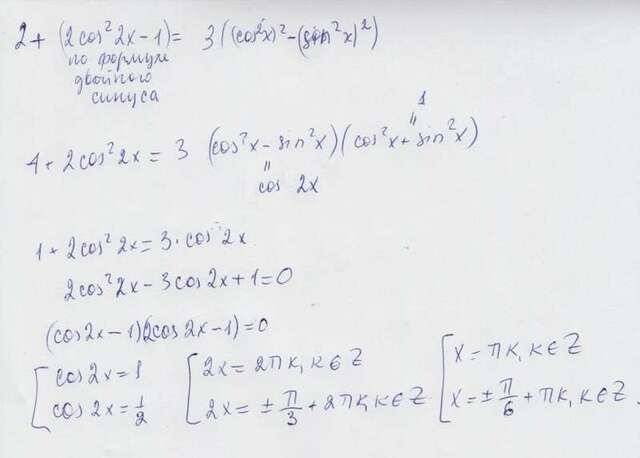 2 + (2cos² 2x − 1) = 3((cos²x)² − (sin²x)²)
по формуле
двойного
синуса
1
"
1 + 2cos² 2x = 3 (cos²x − sin²x)(cos²x + sin²x)
"
cos 2x
1 + 2cos² 2x = 3 · cos 2x
2cos² 2x − 3cos 2x + 1 = 0
(cos 2x − 1)(2cos 2x − 1) = 0
[ cos 2x = 1 [ 2x = 2πk, k ∈ Z [ x = πk, k ∈ Z
cos 2x = 1/2 2x = ± π/3 + 2πk, k ∈ Z x = ± π/6 + πk, k ∈ Z.